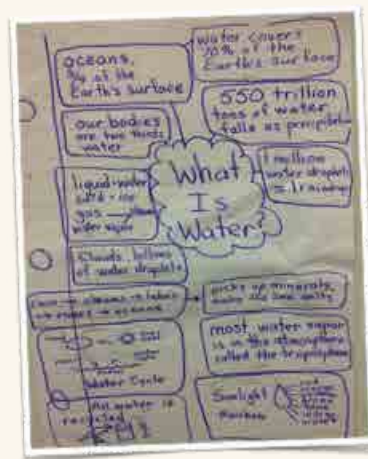 oceans,
3/4 of the
Earth's surface
water covers
70% of the
Earth's surface
our bodies
are two thirds
water
550 trillion
tons of water
falls as precipitation
What
Is
Water?
1 million
water droplets
= 1 raindrop
liquid-water
solid-ice
gas
water vapor
Clouds, billions
of water droplets
rain → streams → lakes
→ rivers → oceans
picks up minerals,
most water vapor
is in the atmosphere
called the troposphere
Water Cycle
All water is
recycled
Sunlight
Rainbow